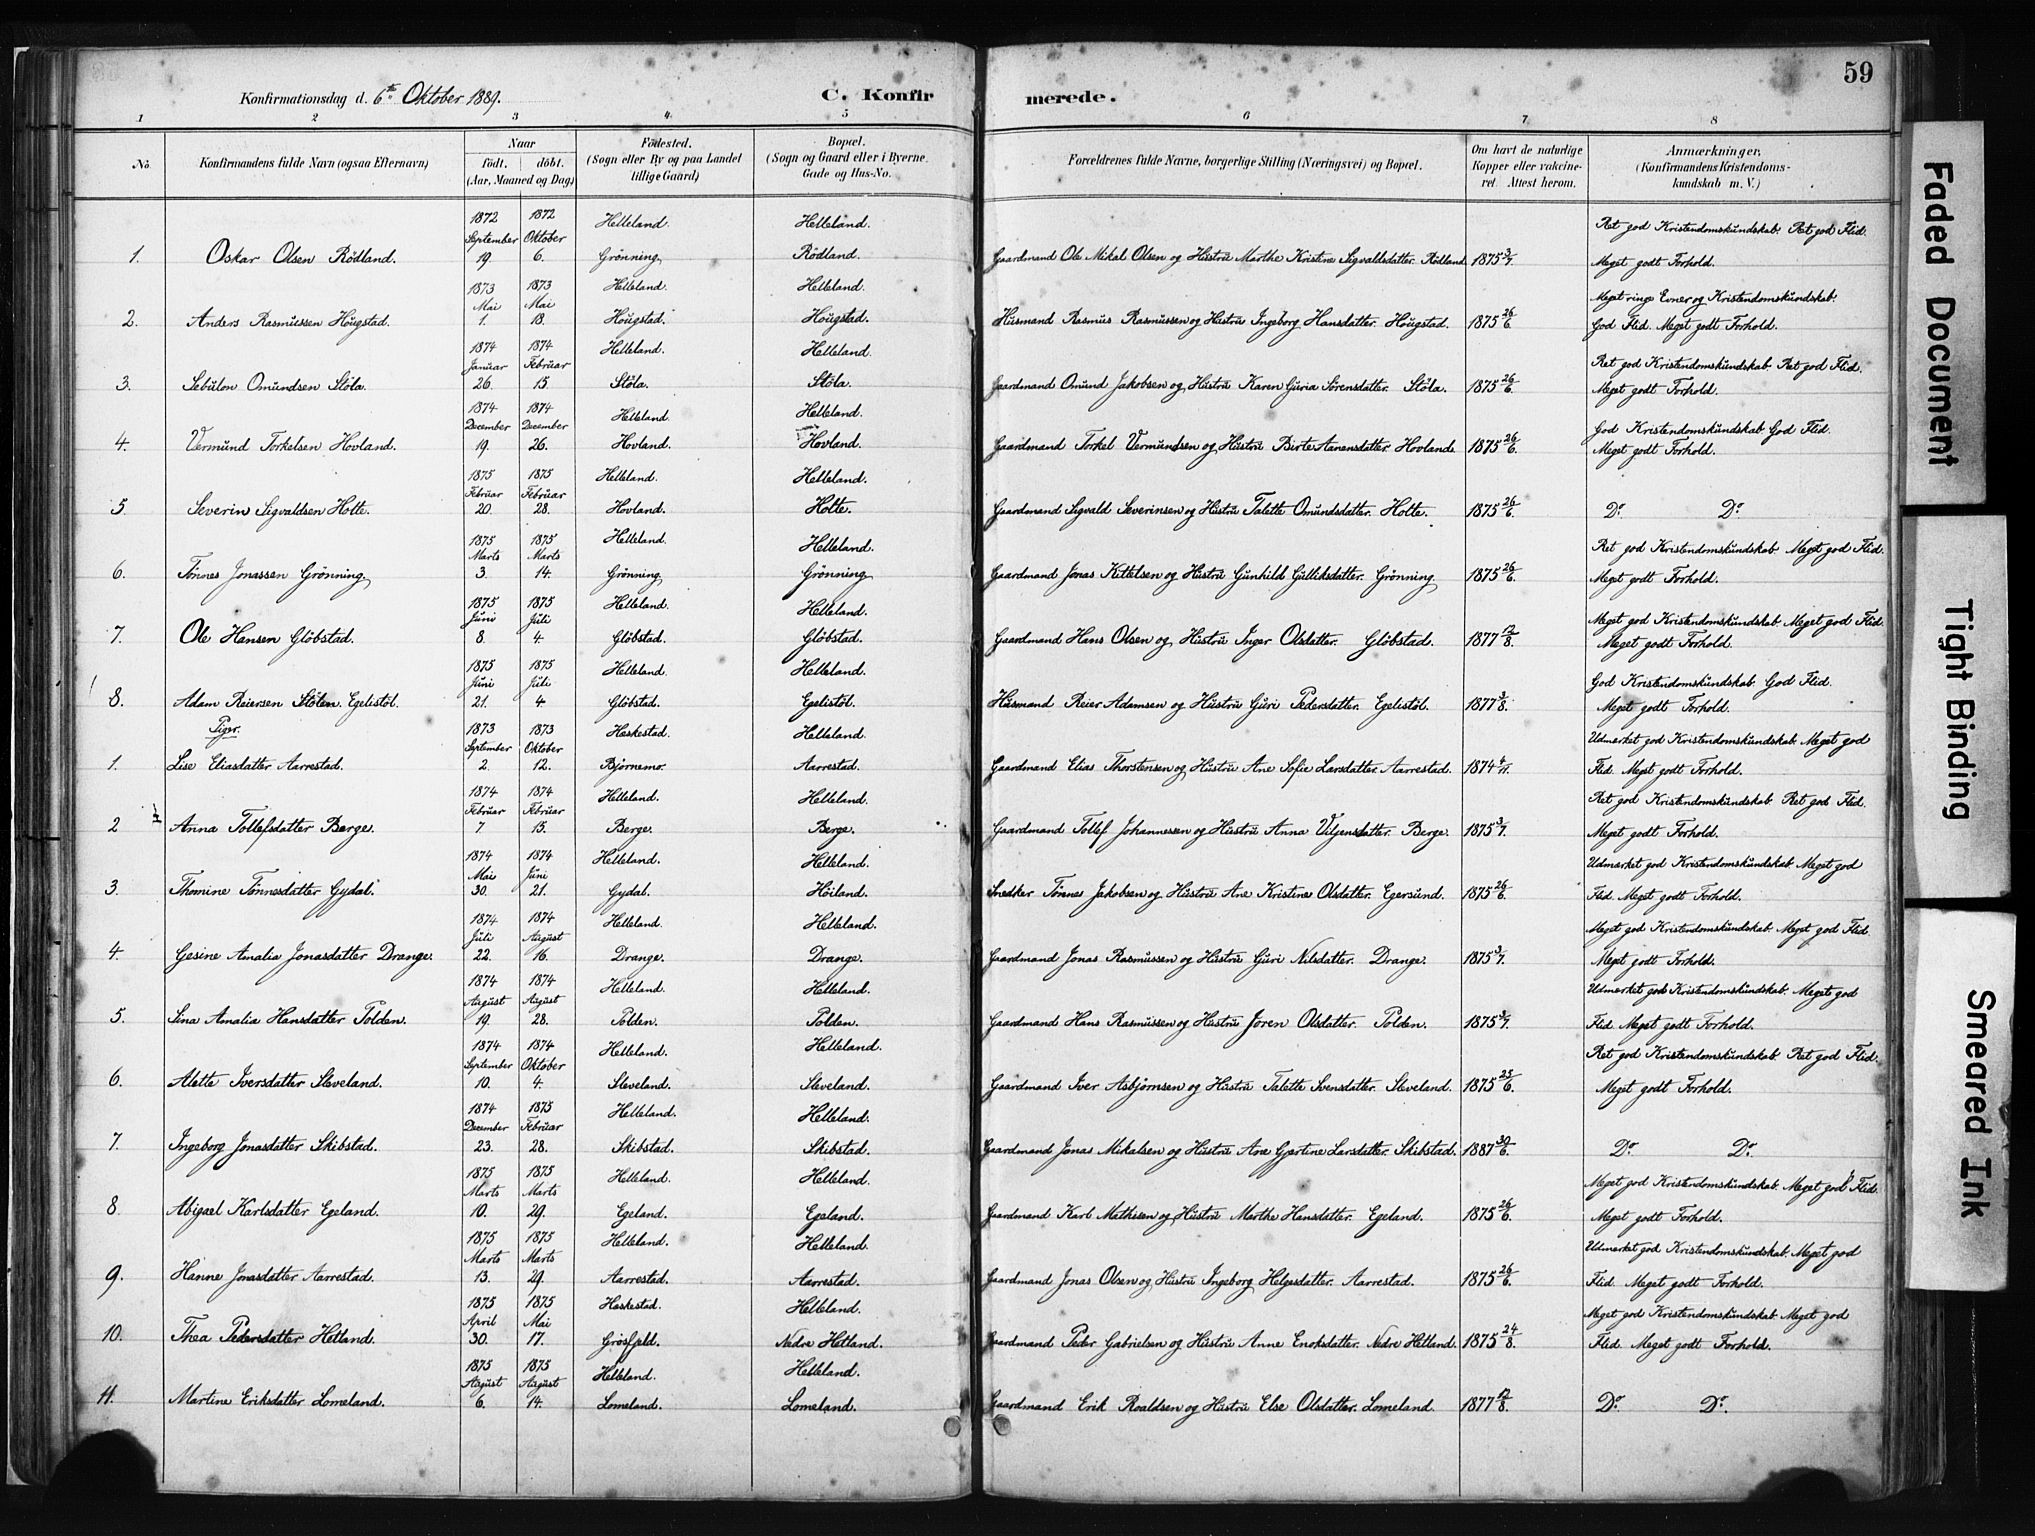 59
Konfirmationsdag d. 6te Oktober 1889. C. Konfirmerede.
1 2 3 4 5 6 7 8
No. Konfirmandens fulde Navn (ogsaa Efternavn) Naar född. döbt. (Aar, Maaned og Dag) Födested. (Sogn eller By og paa Landet tillige Gaard) Bopæl. (Sogn og Gaard eller i Byerne Gade og Hus-No. Forældrenes fulde Navne, borgerlige Stilling (Næringsvei) og Bopæl. Om havt de naturlige Kopper eller vakcineret. Attest herom. Anmærkninger, (Konfirmandens Kristendomskundskab m. V.)
1872 September 1872 Oktober Helleland. Helleland. Ret god Kristendomskundskab. Ret god Flid.
1. Oskar Olsen Rödland. 19 6. Grönning. Rödland. Gaardmand Ole Mikal Olsen og Hustru Marthe Kristine Sigvaldsdatter. Rödland 1875 3/7. Meget godt Forhold.
1873 Mai 1873 Mai Helleland. Helleland. Meget ringe Evner og Kristendomskundskab.
2. Anders Rasmussen Hougstad. 1. 18. Hougstad. Hougstad. Husmand Rasmus Rasmussen og Hustru Ingeborg Hansdatter. Hougstad. 1875 26/6. God Flid. Meget godt Forhold.
1874 Januar 1874 Februar Helleland. Helleland. Ret god Kristendomskundskab. Ret god Flid.
3. Sebulon Omundsen Stöla. 26. 15. Stöla. Stöla. Gaardmand Omund Jakobsen og Hustru Karen Guria Sörensdatter. Stöla. 1875 26/6. Meget godt Forhold.
1874 December 1874 December Helleland Helleland. God Kristendomskundskab. God Flid.
4. Vermund Torkelsen Hovland. 19. 26. Hovland. Hovland. Gaardmand Torkel Vermundsen og Hustru Birte Aanensdatter. Hovland. 1875 26/6. Meget godt Forhold.
1875 Februar 1875 Februar Helleland. Helleland.
5. Severin Sigvaldsen Holte. 20. 28. Hovland. Holte. Gaardmand Sigvald Severinsen og Hustru Talette Omundsdatter. Holte. 1875 26/6. Do. Do.
1875 Marts 1875 Marts Helleland. Helleland. Ret god Kristendomskundskab. Meget god Flid.
6. Tönnes Jonassen Grönning. 3. 14. Grönning. Grönning. Gaardmand Jonas Kittelsen og Hustru Gunhild Gulliksdatter. Grönning. 1875 26/6. Meget godt Forhold.
1875 Juni 1875 Juli Helleland. Helleland. Meget god Kristendomskundskab. Meget god Flid.
7. Ole Hansen Glöbstad. 8 4. Glöbstad. Glöbstad. Gaardmand Hans Olsen og Hustru Inger Olsdatter. Glöbstad. 1877 12/8. Meget godt Forhold.
1875 Juni 1875 Juli Helleland. Helleland. God Kristendomskundskab. God Flid.
8. Adam Reiersen Stölen. Egelistöl. 21. 4 Glöbstad. Egelistöl. Husmand Reier Adamsen og Hustru Guri Pedersdatter. Egelistöl. 1877 3/8. Meget godt Forhold.
Piger. 1873 September 1873 Oktober Heskestad. Helleland. Udmærket god Kristendomskundskab. Meget god
1. Lise Eliasdatter Aarrestad. 2. 12. Bjørnemo. Aarrestad. Gaardmand Elias Thorstensen og Hustru Ane Sofie Larsdatter. Aarrestad. 1874 4/11. Flid. Meget godt Forhold.
1874 Februar 1874 Februar Helleland. Helleland. Ret god Kristendomskundskab. Ret god Flid.
2 Anna Tollefsdatter Berge. 7 15. Berge. Berge. Gaardmand Tollef Johannessen og Hustru Anna Viljensdatter. Berge. 1875 3/7. Meget godt Forhold.
1874 Mai 1874 Juni Helleland. Helleland. Udmærket god Kristendomskundskab. Meget god
3. Thomine Tönnesdatter Gydal. 30. 21. Gydal. Höiland. Snedker Tönnes Jakobsen og Hustru Ane Kristine Olsdatter. Egersund. 1875 26/6. Flid. Meget godt Forhold.
1874 Juli 1874 August Helleland. Helleland. Meget god Kristendomskundskab. Meget god Flid
4. Gesine Amalia Jonasdatter Drange. 22. 16. Drange. Drange. Gaardmand Jonas Rasmussen og Hustru Guri Nilsdatter. Drange. 1875 3/7. Meget godt Forhold.
1874 August 1874 August Helleland. Helleland. Udmærket god Kristendomskundskab. Meget god
5. Sina Amalia Hansdatter Polden. 19. 28. Polden. Polden. Gaardmand Hans Rasmussen og Hustru Joren Olsdatter. Polden. 1875 3/7. Flid. Meget godt Forhold.
1874 September 1874 Oktober Helleland. Helleland. Ret god Kristendomskundskab. Ret god Flid.
6. Alette Iversdatter Sleveland. 10. 4. Sleveland. Sleveland. Gaardmand Iver Asbjørnsen og Hustru Talette Svensdatter. Sleveland. 1875 25/6. Meget godt Forhold.
1874 December 1875 Februar Helleland. Helleland.
7. Ingeborg Jonasdatter Skibstad. 23. 28. Skibstad. Skibstad. Gaardmand Jonas Mikalsen og Hustru Ane Gjertine Larsdatter. Skibstad. 1887 30/6. Do. Do.
1875 Marts 1875 Marts Helleland. Helleland. Meget god Kristendomskundskab. Meget god Flid.
8. Abigael Karlsdatter Egeland. 10. 29. Egeland. Egeland. Gaardmand Karl Mathisen og Hustru Marthe Hansdatter. Egeland. 1875 26/6. Meget godt Forhold.
1875 Marts 1875 Marts Helleland. Helleland. Udmærket god Kristendomskundskab. Meget god
9. Hanne Jonasdatter Aarrestad. 13. 29. Aarrestad. Aarrestad. Gaardmand Jonas Olsen og Hustru Ingeborg Helgesdatter. Aarrestad. 1875 26/6. Flid. Meget godt Forhold.
1875 April 1875 Mai Heskestad. Helleland. Meget god Kristendomskundskab. Meget god
10. Thea Pedersdatter Hetland. 30. 17. Grösfjeld. Nedre Hetland. Gaardmand Peder Gabrielsen og Hustru Anne Enoksdatter. Nedre Hetland. 1875 24/8. Flid. Meget godt Forhold.
1875 August 1875 August Helleland. Helleland.
11. Martine Eriksdatter Lomeland. 6. 14. Lomeland. Lomeland. Gaardmand Erik Roaldsen og Hustru Else Olsdatter. Lomeland. 1877 12/8. Do. Do.
Faded Document
Tight Binding
Smeared Ink